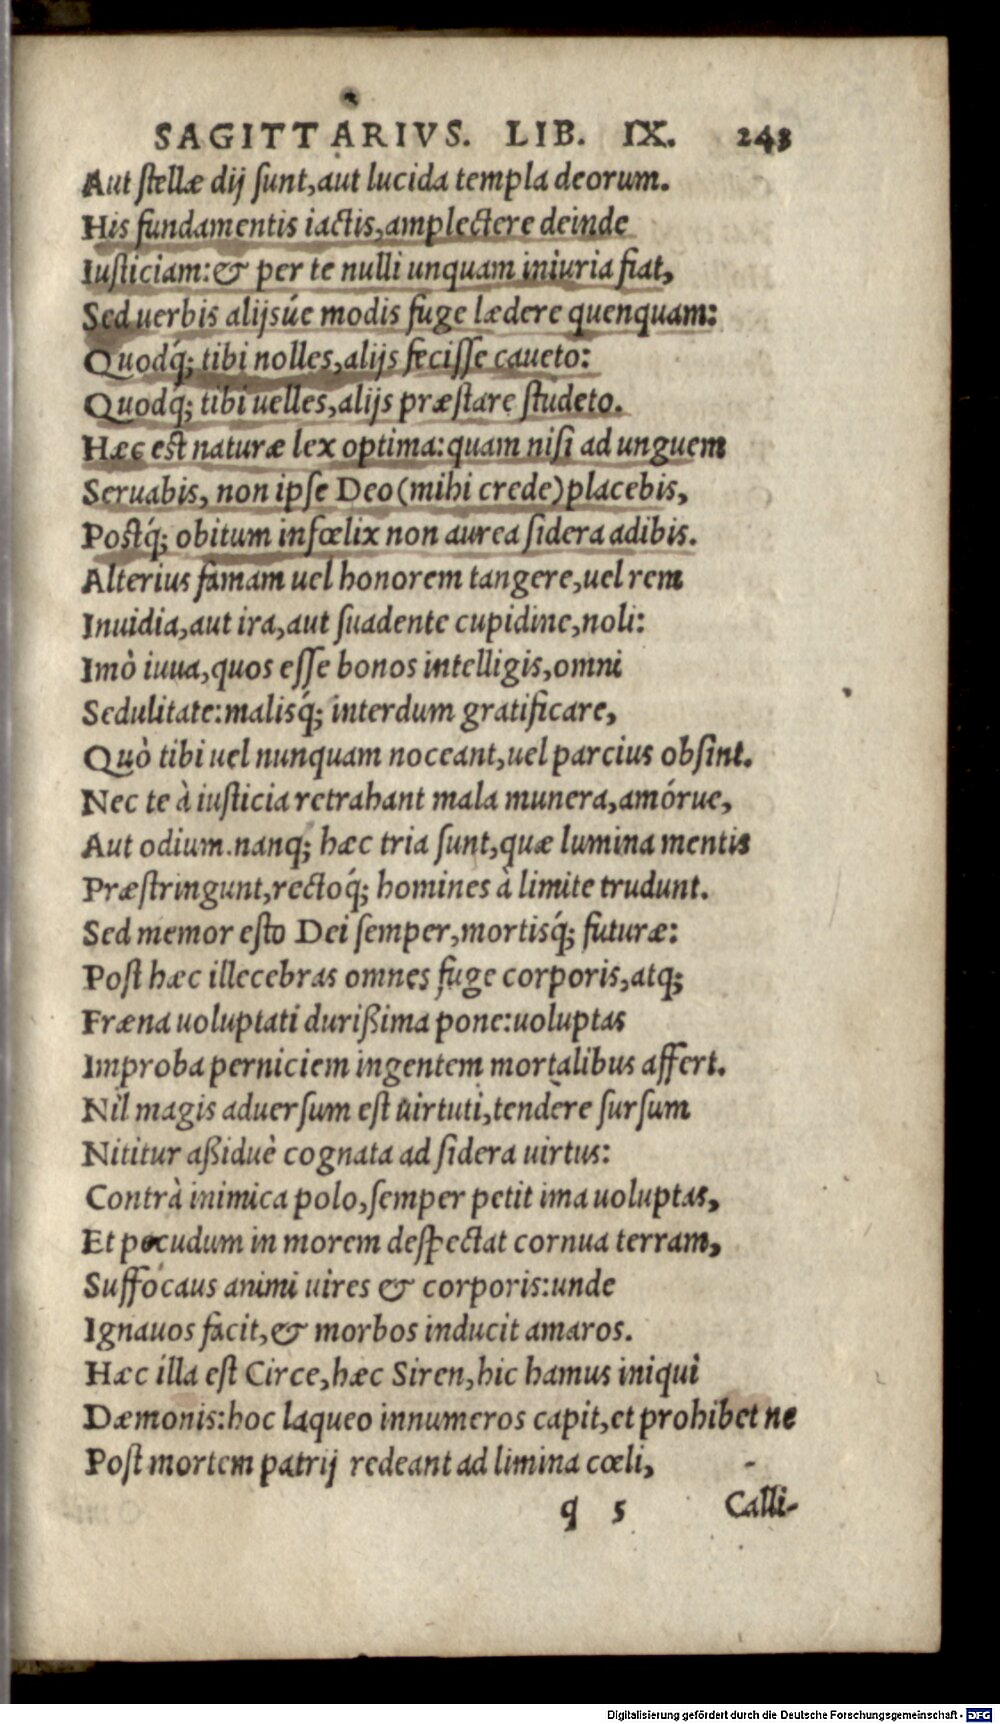 SAGITTARIVS. LIB. IX. 243
Aut stellæ dij sunt, aut lucida templa deorum.
His fundamentis iactis, amplectere deinde
Iusticiam: & per te nulli unquam iniuria fiat,
Sed uerbis alijsúe modis fuge lædere quenquam:
Quodq́; tibi nolles, alijs fecisse caueto:
Quodq́; tibi uelles, alijs præstare studeto.
Hæc est naturæ lex optima: quam nisi ad unguem
Seruabis, non ipse Deo (mihi crede) placebis,
Postq́; obitum infœlix non aurea sidera adibis.
Alterius famam uel honorem tangere, uel rem
Inuidia, aut ira, aut suadente cupidine, noli:
Imò iuua, quos esse bonos intelligis, omni
Sedulitate: malisq́; interdum gratificare,
Quò tibi uel nunquam noceant, uel parcius obsint.
Nec te à iusticia retrahant mala munera, amórue,
Aut odium. nanq; hæc tria sunt, quæ lumina mentis
Præstringunt, rectoq́; homines à limite trudunt.
Sed memor esto Dei semper, mortisq́; futuræ:
Post hæc illecebras omnes fuge corporis, atq;
Fræna uoluptati durißima pone: uoluptas
Improba perniciem ingentem mortalibus affert.
Nil magis aduersum est uirtuti, tendere sursum
Nititur aßiduè cognata ad sidera uirtus:
Contrà inimica polo, semper petit ima uoluptas,
Et pecudum in morem despectat cornua terram,
Suffocaus animi uires & corporis: unde
Ignauos facit, & morbos inducit amaros.
Hæc illa est Circe, hæc Siren, hic hamus iniqui
Dæmonis: hoc laqueo innumeros capit, et prohibet ne
Post mortem patrij redeant ad limina cœli,
q 5 Calli-
Digitalisierung gefördert durch die Deutsche Forschungsgemeinschaft - DFG